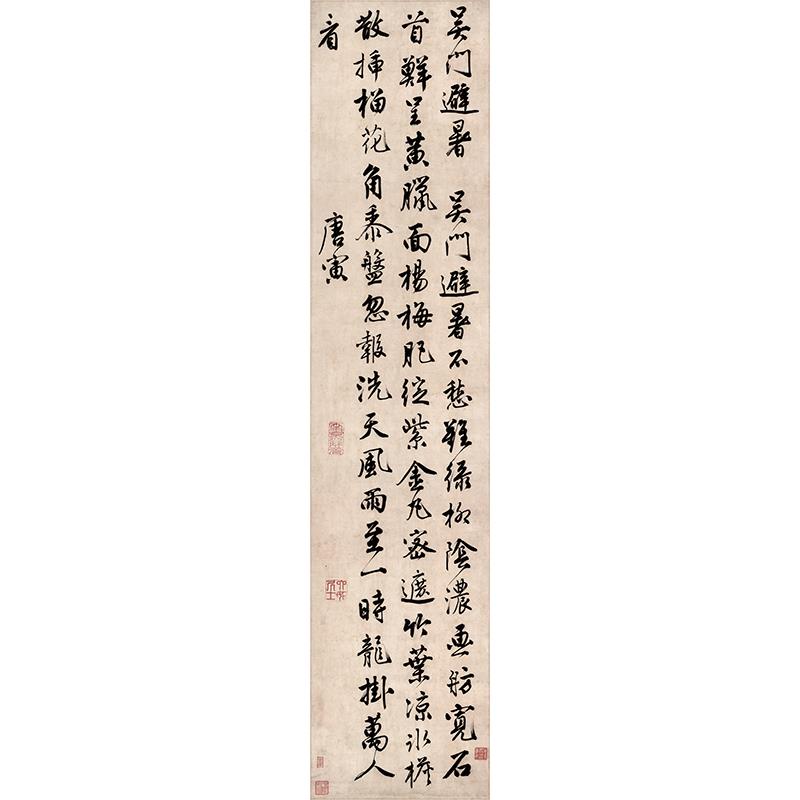 吳門避暑 吳門避暑不愁難綠柳陰濃畫舫寬石
首鮮呈黃臘面楊梅肥綻紫金丸密遮竹葉凉冰
散插榴花角黍盤忽報洗天風雨至一時龍掛萬人
看
唐寅
六如居士